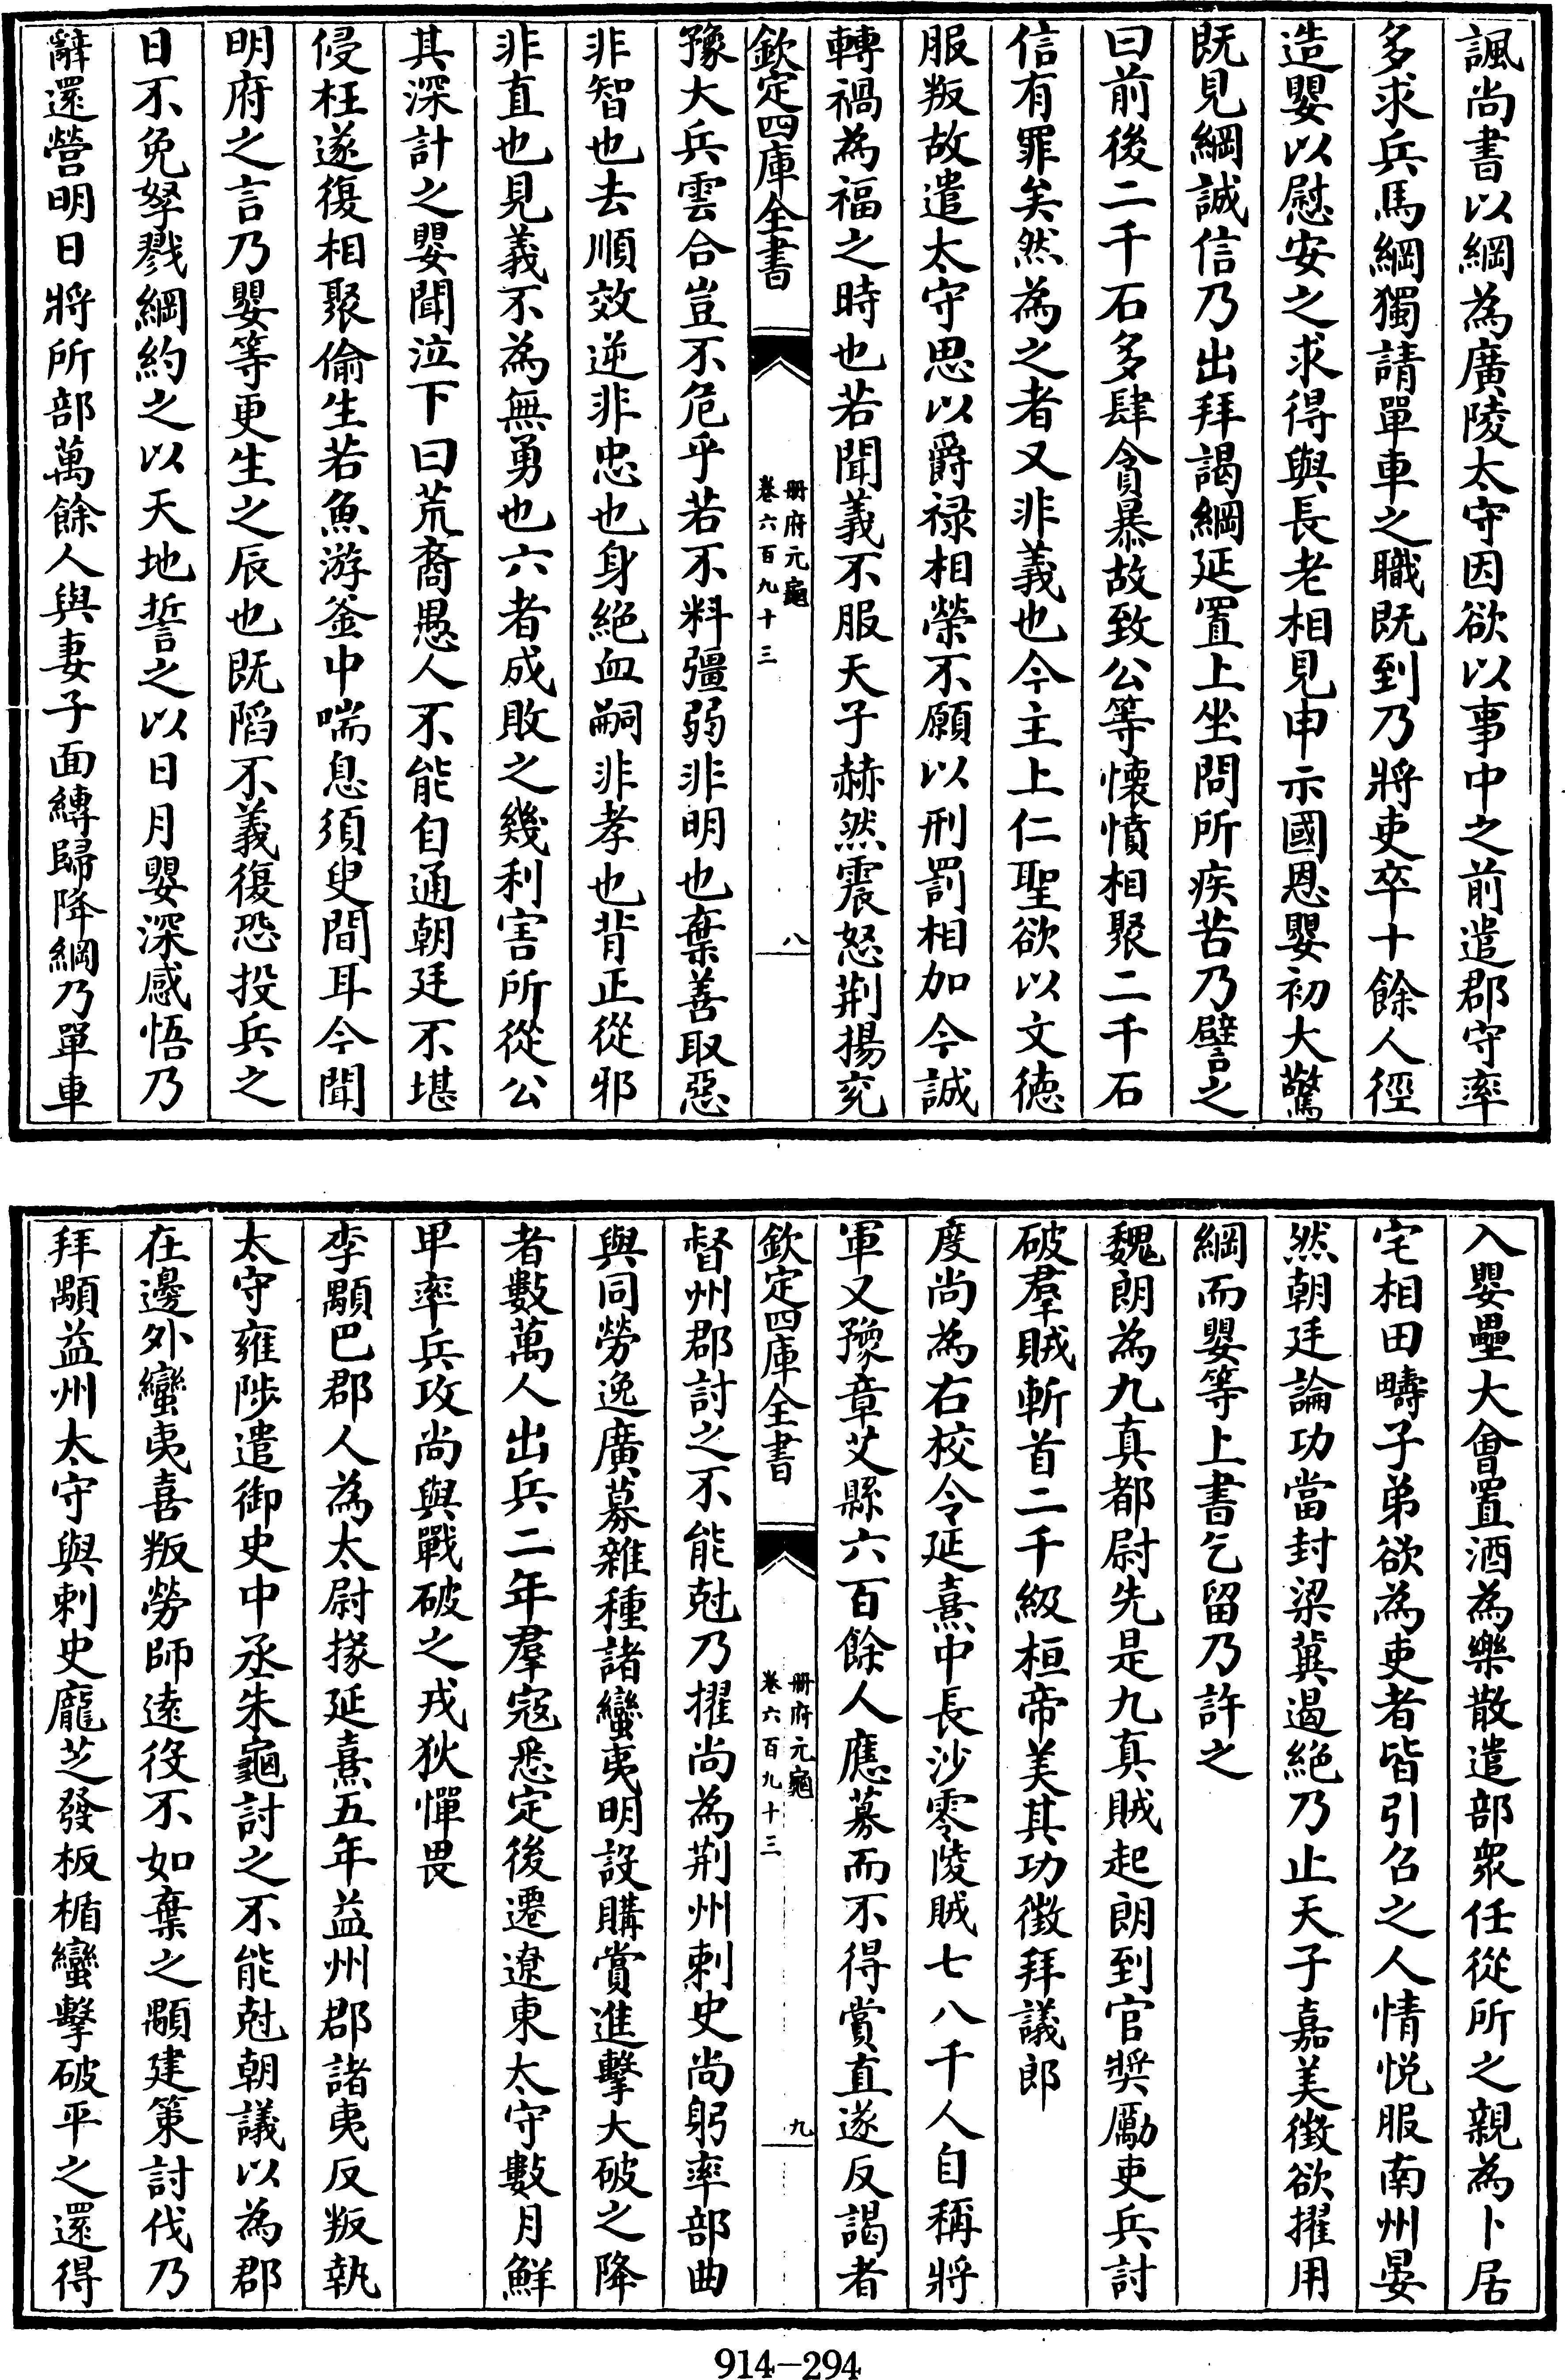 諷尚書以綱為廣陵太守因欲以事中之前遣郡守率
多求兵馬綱獨請單車之職既到乃將吏卒十餘人徑
造嬰以慰安之求得與長老相見申示國恩嬰初大驚
既見綱誠信乃出拜謁綱延置上坐問所疾苦乃譬之
曰前後二千石多肆貪暴故致公等懷憤相聚二千石
信有罪矣然為之者又非義也今主上仁聖欲以文徳
服叛故遣太守思以爵禄相榮不願以刑罰相加今誠
轉禍為福之時也若聞義不服天子赫然震怒荆揚兖
欽定四庫全書
冊府元龜
卷六百九十三
八
豫大兵雲合豈不危乎若不料彊弱非明也棄善取惡
非智也去順效逆非忠也身絶血嗣非孝也背正從邪
非直也見義不為無勇也六者成敗之幾利害所從公
其深計之嬰聞泣下曰荒裔愚人不能自通朝廷不堪
侵枉遂復相聚偷生若魚游釜中喘息須臾間耳今聞
明府之言乃嬰等更生之辰也既陷不義復恐投兵之
日不免孥戮綱約之以天地誓之以日月嬰深感悟乃
辭還營明日將所部萬餘人與妻子面縳歸降綱乃單車
入嬰壘大會置酒為樂散遣部衆任從所之親為卜居
宅相田疇子弟欲為吏者皆引召之人情悦服南州晏
然朝廷論功當封梁冀遏絶乃止天子嘉美徵欲擢用
綱而嬰等上書乞留乃許之
魏朗為九真都尉先是九真賊起朗到官奬勵吏兵討
破羣賊斬首二千級桓帝美其功徵拜議郎
度尚為右校令延熹中長沙零陵賊七八千人自稱將
軍又豫章艾縣六百餘人應募而不得賞直遂反謁者
欽定四庫全書
冊府元龜
卷六百九十三
九
督州郡討之不能尅乃擢尚為荆州刺史尚躬率部曲
與同勞逸廣募雜種諸蠻夷明設購賞進擊大破之降
者數萬人出兵二年羣寇悉定後遷遼東太守數月鮮
卑率兵攻尚與戰破之戎狄憚畏
李顒巴郡人為太尉掾延熹五年益州郡諸夷反叛執
太守雍陟遣御史中丞朱龜討之不能尅朝議以為郡
在邊外蠻夷喜叛勞師遠役不如棄之顒建策討伐乃
拜顒益州太守與刺史龐芝發板楯蠻擊破平之還得
914-294